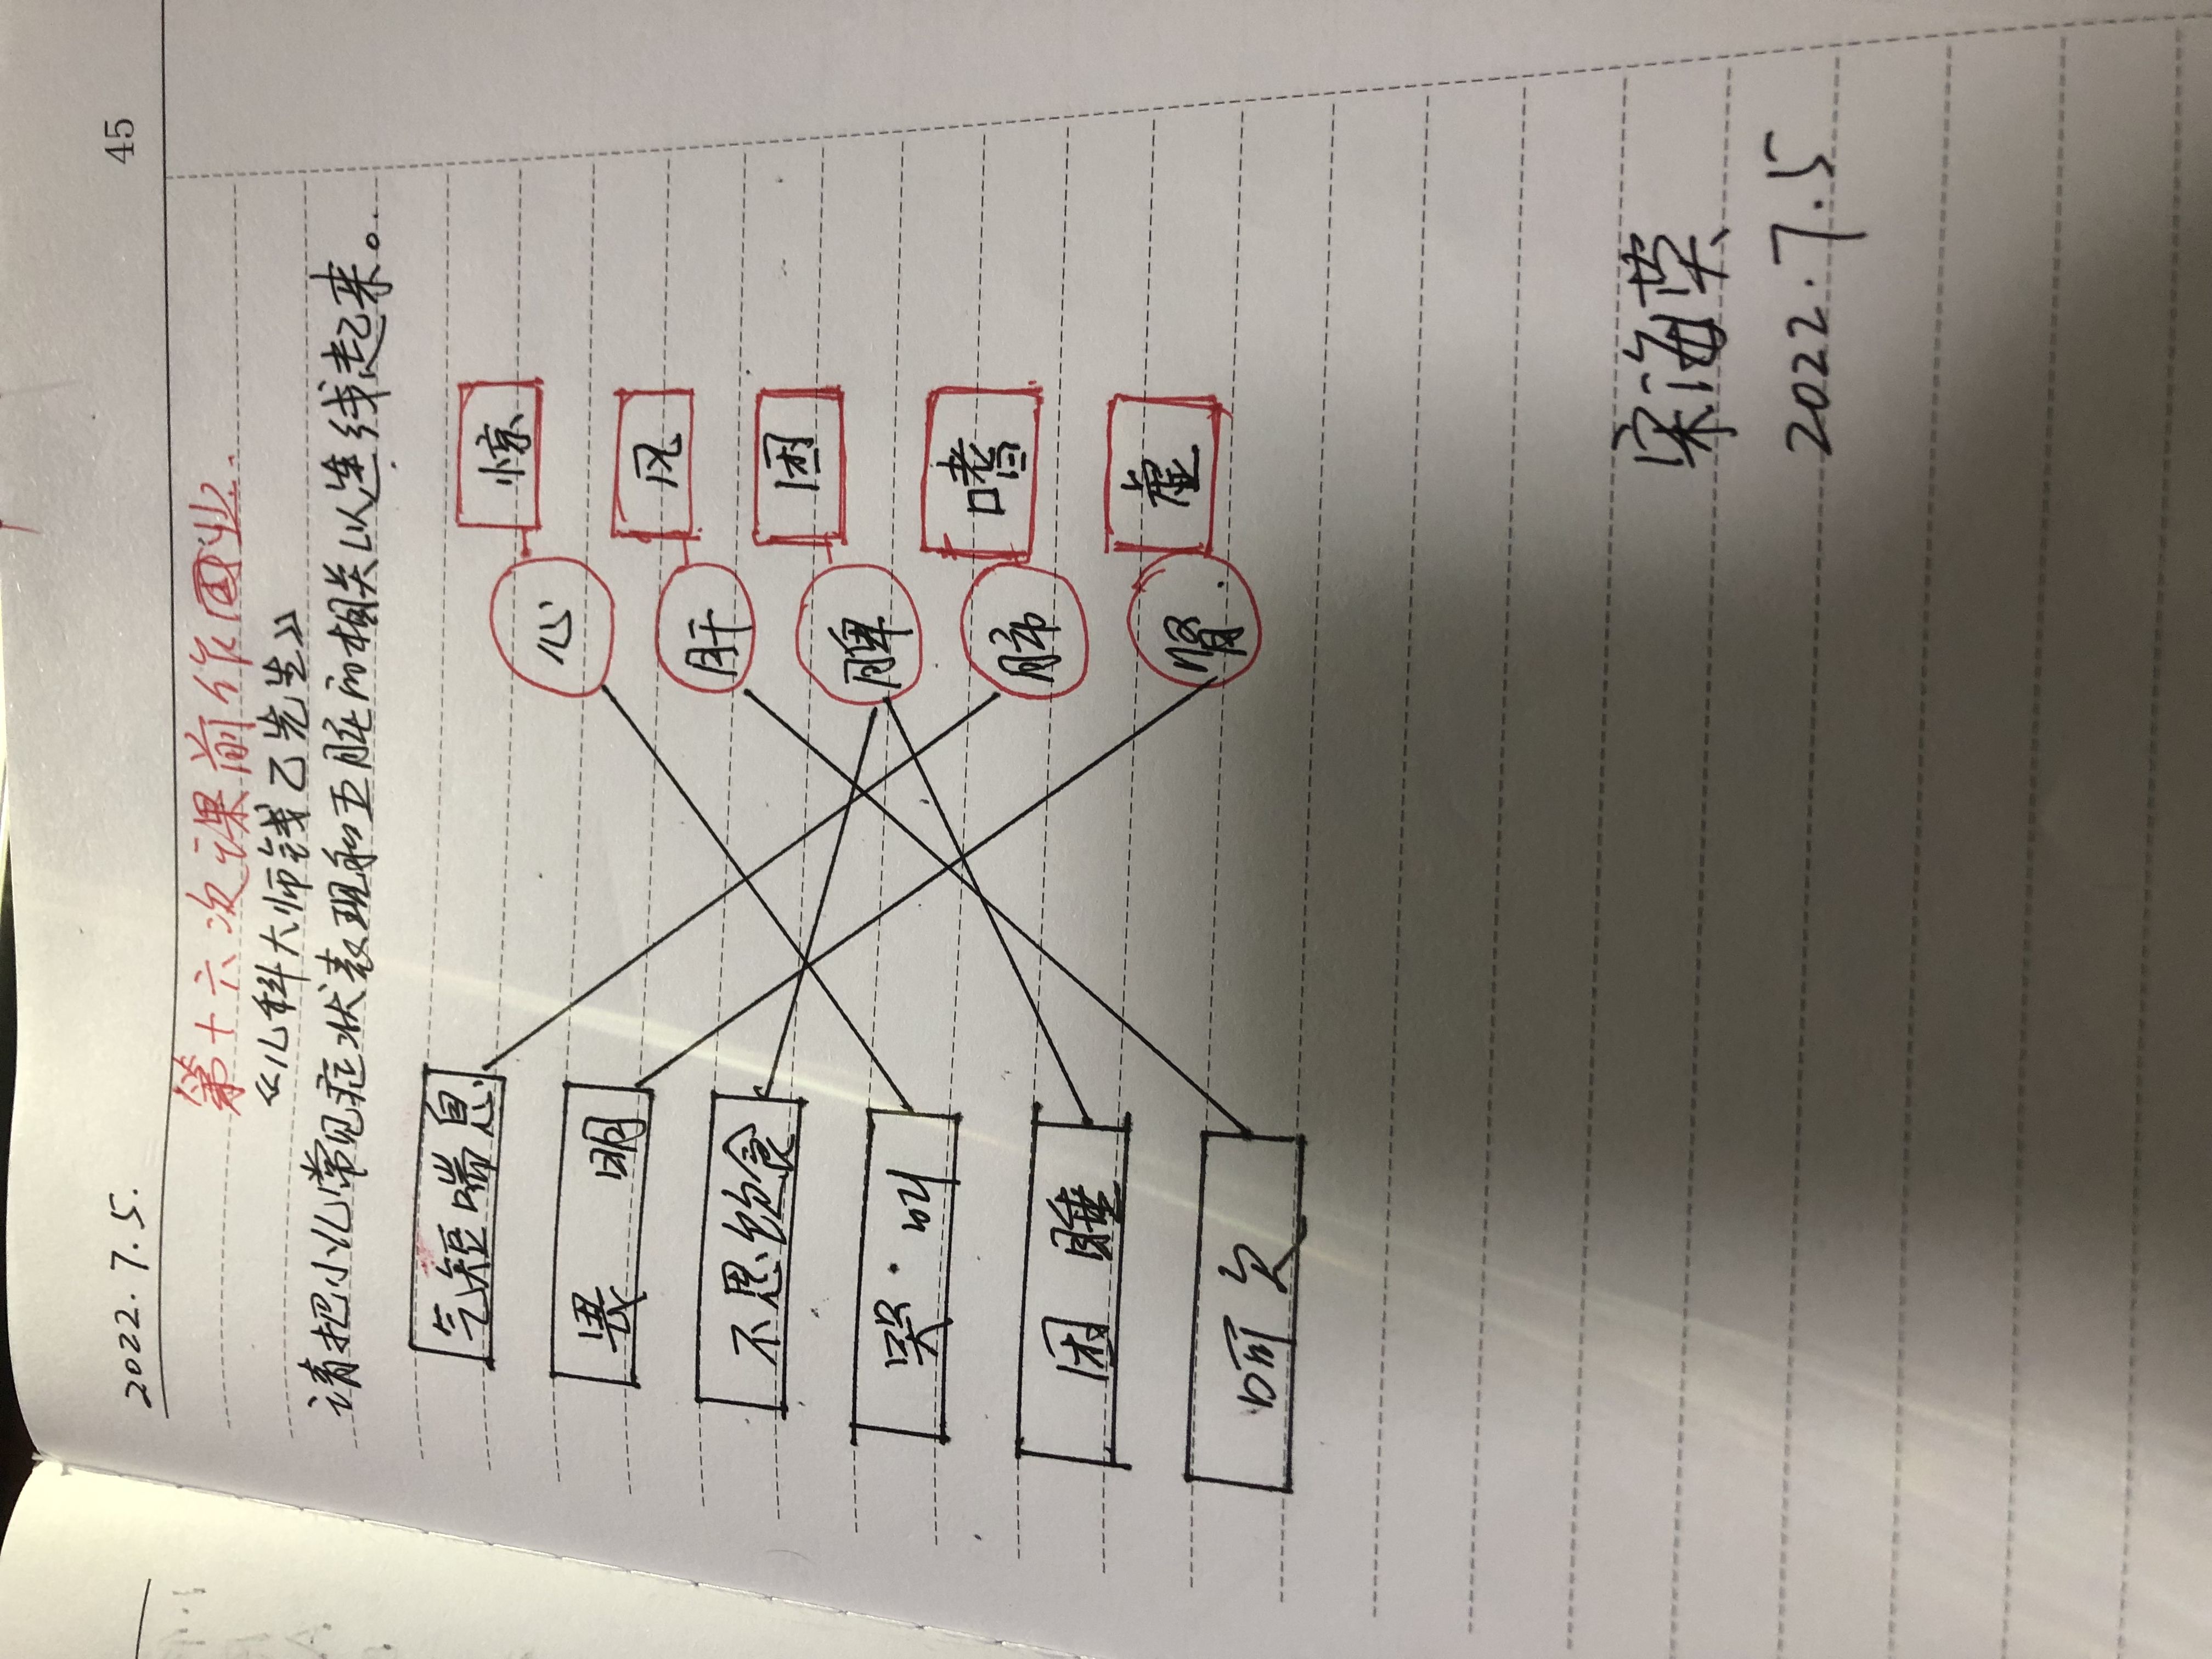 2022.7.5. 45
第十六次课前作业.
《儿科大师钱乙先生》
请把小儿常见症状表现和五脏的相关以连线起来。
气短喘息 心 惊
畏明 肝 风
不思饮食 脾 困
哭·叫 肺 嗜
困睡 肾 虚
呵欠
宋海荣
2022.7.5